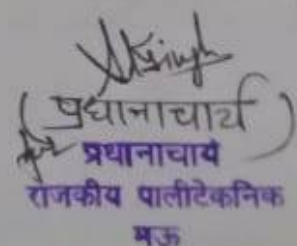 ( प्रधानाचार्य )
प्रधानाचार्य
राजकीय पालीटेकनिक
मऊ